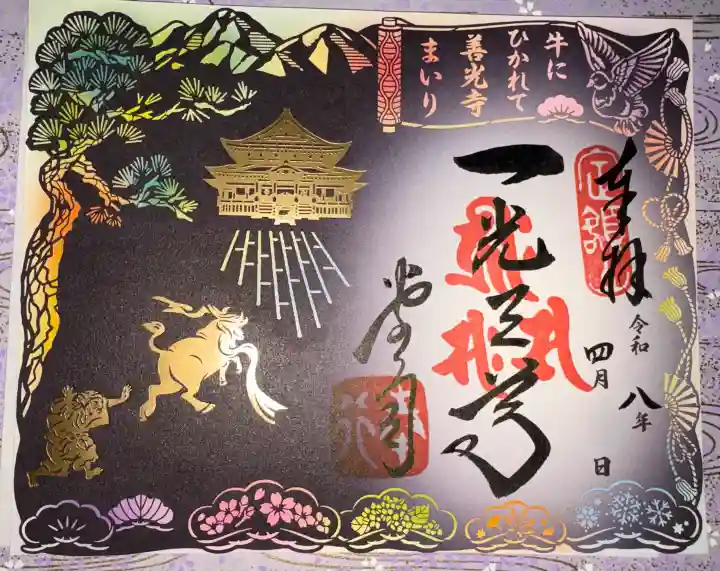 牛に
ひかれて
善光寺
まいり
奉拝
令和八年
四月 日
一光三尊